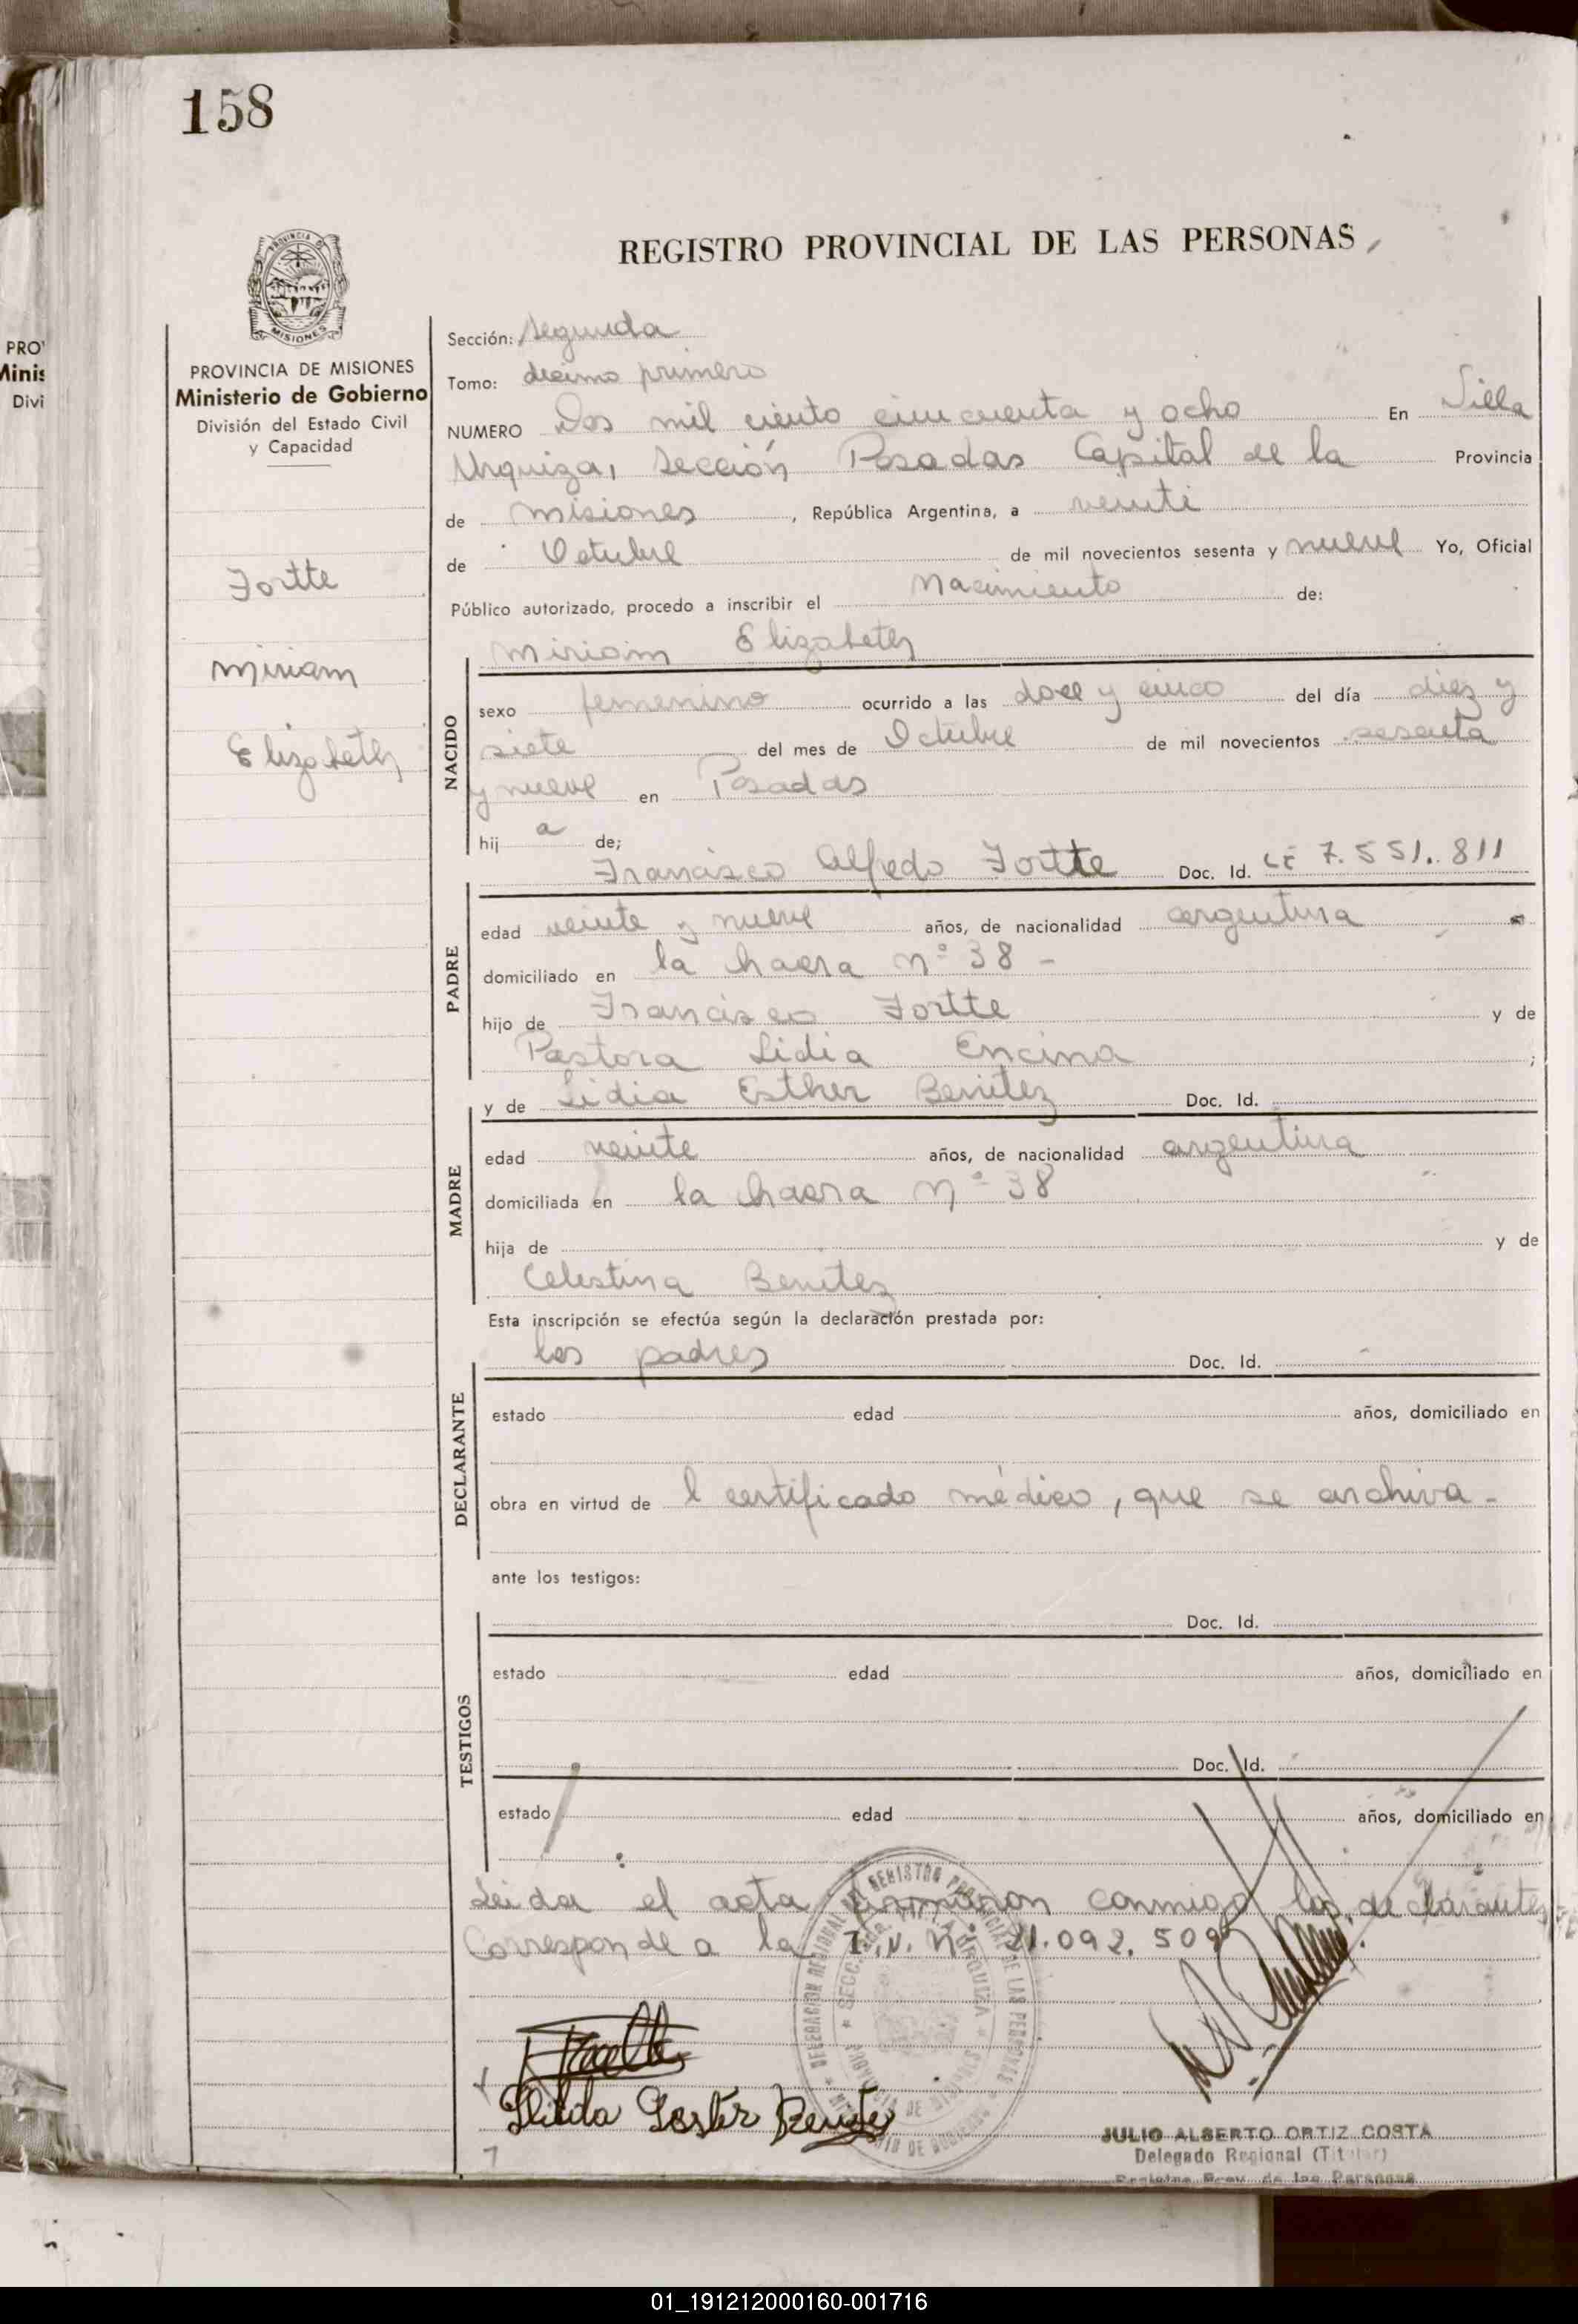 158
REGISTRO PROVINCIAL DE LAS PERSONAS
PROVINCIA DE MISIONES
Ministerio de Gobierno
División del Estado Civil
y Capacidad
Fortte
Miriam
Elizabeth
Sección: Segunda
Tomo: décimo primero
NUMERO Dos mil ciento cincuenta y ocho En Villa
Urquiza, Sección Posadas Capital de la Provincia
de Misiones, República Argentina, a veinti
de Octubre de mil novecientos sesenta y nueve Yo, Oficial
Público autorizado, procedo a inscribir el Nacimiento de:
Miriam Elizabeth
NACIDO
sexo femenino ocurrido a las doce y cinco del día diez y
siete del mes de Octubre de mil novecientos sesenta
y nueve en Posadas
hij a de;
Francisco Alfredo Fortte Doc. Id. LE 7.551.811
PADRE
edad veinte y nueve años, de nacionalidad argentina
domiciliado en la chacra nº 38 -
hijo de Francisco Fortte y de
Pastora Lidia Encina ;
y de Lidia Esther Benitez Doc. Id.
MADRE
edad veinte años, de nacionalidad argentina
domiciliada en la chacra nº 38
hija de y de
Celestina Benitez
Esta inscripción se efectúa según la declaración prestada por:
los padres Doc. Id.
DECLARANTE
estado edad años, domiciliado en
obra en virtud de l certificado médico, que se archiva -
ante los testigos:
Doc. Id.
TESTIGOS
estado edad años, domiciliado en
Doc. Id.
estado edad años, domiciliado en
Leida el acta firmaron conmigo los declarantes
Corresponde a la nº 21.092.509
JULIO ALBERTO ORTIZ COSTA
Delegado Regional (Titular)
Registro Prov. de las Personas
01_191212000160-001716